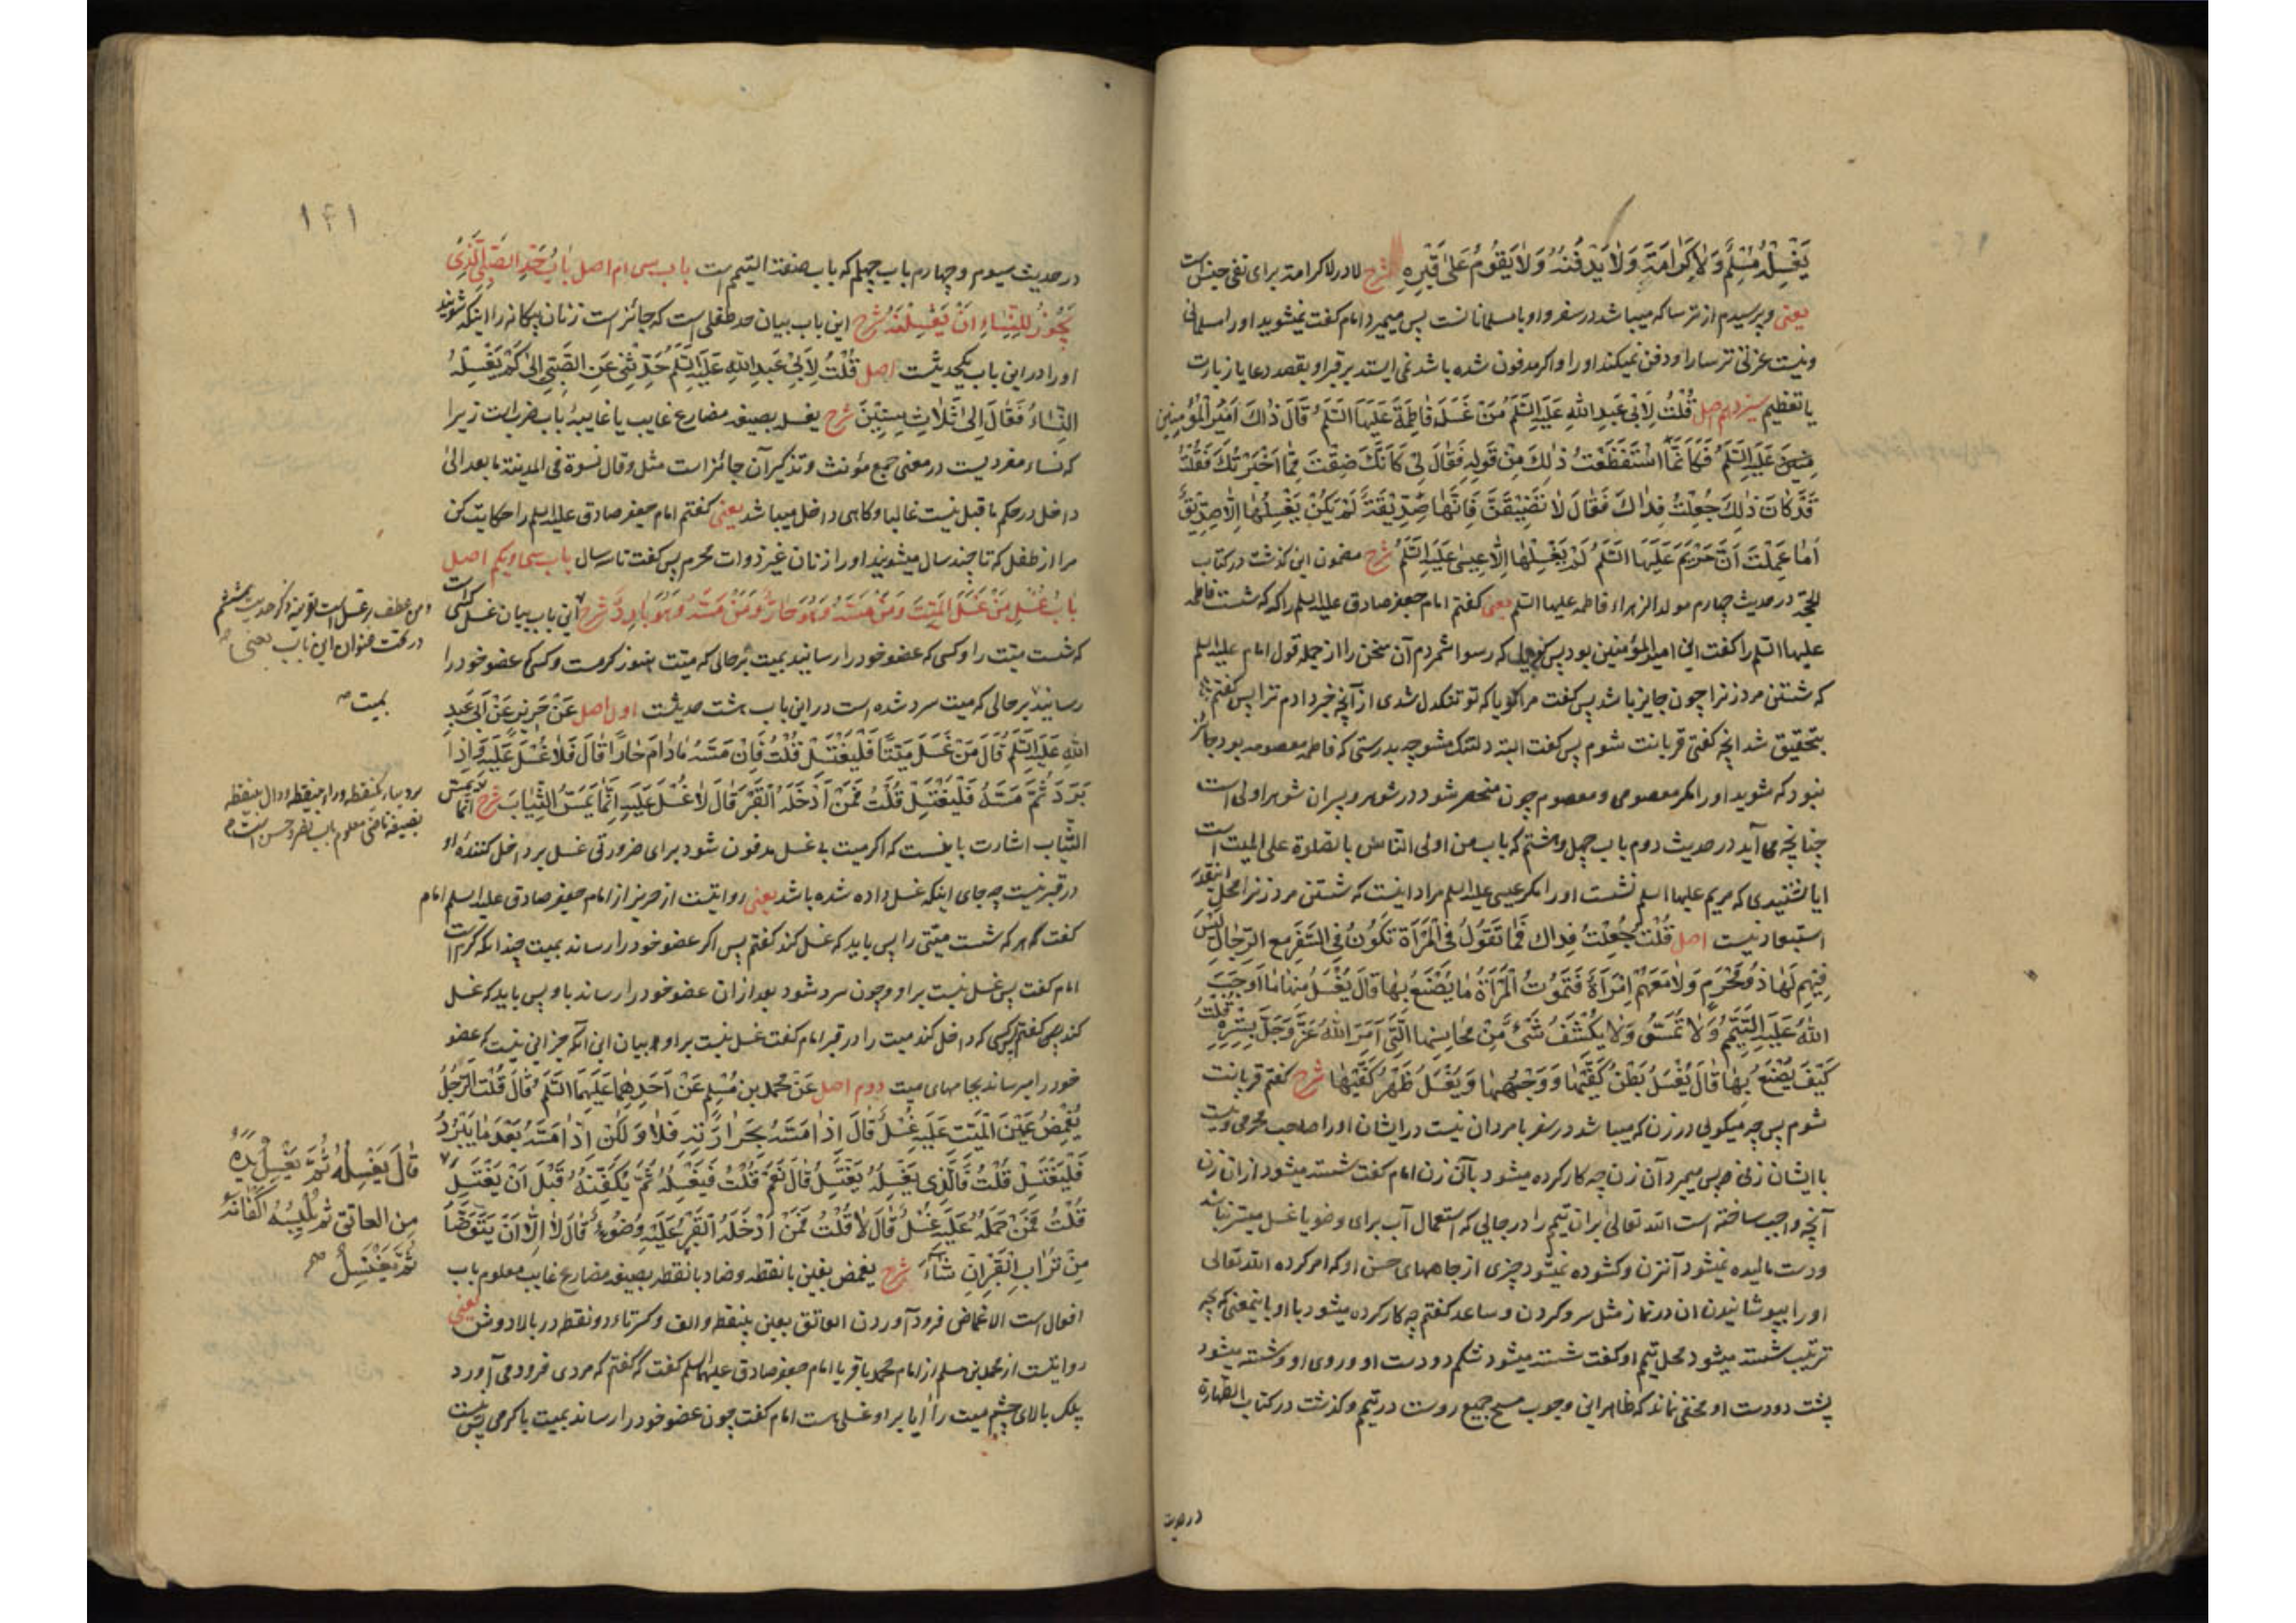 يَغْسِلُهُ مُسْلِمٌ وَلَا كَرَامَةَ وَلَا يَدْفِنُهُ وَلَا يَقُومُ عَلَى قَبْرِهِ شرح لا در لا كرامة برای نفی جنس است
یعنی و پرسیدم از ترسا که میباشد در سفر و او با مسلمانانست پس میمیرد امام گفت نمیشوید او را مسلمانی
و نیست عزتی ترسا را و دفن نمیکند او را و اگر مدفون شده باشد نمی ایستد بر قبر او بقصد دعا یا زیارت
یا تعظیم سیزدهم اصل قُلْتُ لِأَبِي عَبْدِ اللَّهِ عَلَيْهِ السَّلَمُ مَنْ غَسَّلَ فَاطِمَةَ عَلَيْهَا السَّلَمُ قَالَ ذَاكَ أَمِيرُ الْمُؤْمِنِينَ
عَلَيْهِ السَّلَمُ فَكَأَنَّمَا اسْتَفْظَعْتُ ذَلِكَ مِنْ قَوْلِهِ فَقَالَ لِي كَأَنَّكَ ضِقْتَ مِمَّا أَخْبَرْتُكَ فَقُلْتُ
قَدْ كَانَ ذَلِكَ جُعِلْتُ فِدَاكَ فَقَالَ لَا تَضِيقَنَّ فَإِنَّهَا صِدِّيقَةٌ لَمْ يَكُنْ يَغْسِلُهَا إِلَّا صِدِّيقٌ
أَمَا عَلِمْتَ أَنَّ مَرْيَمَ عَلَيْهَا السَّلَمُ لَمْ يَغْسِلْهَا إِلَّا عِيسَى عَلَيْهِ السَّلَمُ شرح مضمون این گذشت در کتاب
الحجّة در حدیث چهارم مولد الزهراء فاطمه علیها السّلم یعنی گفتم امام جعفر صادق علیه السلم را که که شست فاطمه
علیها السّلم را گفت این امیر المؤمنین بود پس که رسوا شمردم آن سخن را از جمله قول امام علیه السلم
که شستن مرد زنرا چون جایز باشد پس گفت مرا گویا که تو تنکدل شدی از آنچه خبر دادم ترا پس گفتم
بتحقیق شد آنچه گفتی قربانت شوم پس گفت البتّه دلتنک مشو چه بدرستی که فاطمه معصومه بود جائز
نبود که شوید او را مگر معصومی و معصوم چون منحصر شود در شوهر و پسران شوهر اولی است
چنانچه می آید در حدیث دوم باب چهل و هشتم که باب من اولی النّاس بالصّلوة علی المیت است
ایا نشنیدی که مریم علیها السلم نشست او را مگر عیسی علیه السلم مراد اینست که شستن مرد زنرا محل اینقدر
استبعاد نیست اصل قُلْتُ جُعِلْتُ فِدَاكَ فَمَا تَقُولُ فِي الْمَرْأَةِ تَكُونُ فِي السَّفَرِ مَعَ الرِّجَالِ لَيْسَ
فِيهِمْ لَهَا ذُو مَحْرَمٍ وَلَا مَعَهُمُ امْرَأَةٌ فَتَمُوتُ الْمَرْأَةُ مَا يُصْنَعُ بِهَا قَالَ يُغْسَلُ مِنْهَا مَا أَوْجَبَ
اللَّهُ عَلَيْهِ التَّيَمُّمَ وَلَا تُمَسُّ وَلَا يُكْشَفُ شَيْءٌ مِنْ مَحَاسِنِهَا الَّتِي أَمَرَ اللَّهُ عَزَّ وَجَلَّ بِسَتْرِهِ قُلْتُ
كَيْفَ يُصْنَعُ بِهَا قَالَ يُغْسَلُ بَطْنُ كَفَّيْهَا وَوَجْهُهَا وَيُغْسَلُ ظَهْرُ كَفَّيْهَا شرح گفتم قربانت
شوم پس چه میگویی در زن که میباشد در سفر با مردان نیست در ایشان او را صاحب محرمی و نیست
با ایشان زنی پس میمیرد آن زن چه کار کرده میشود بآن زن امام گفت شسته میشود از ان زن
آنچه واجب ساخته است الله تعالی بر ان تیمّم را در حالی که استعمال آب برای وضو یا غسل میسّر نباشد
و دست مالیده نمیشود آنزن و کشوده نمیشود چیزی از جاهای حسن او که امر کرده الله تعالی
او را بپوشانیدن ان در نماز مثل سر و گردن و ساعد گفتم چه کار کرده میشود با او باینمعنی که بچه
ترتیب شسته میشود محل تیمّم او گفت شسته میشود شکم دو دست او و روی او و شسته میشود
پشت دو دست او مخفی نماند که ظاهر این وجوب مسح جمیع روست در تیمّم و گذشت در کتاب الطهارة
در حدیث
۱۴۱
در حدیث سیوم و چهارم باب چهلم که باب صفت التیمّم است باب سی ام اصل بَابُ حَدِّ الصَّبِيِّ الَّذِي
يَجُوزُ لِلنِّسَاءِ أَنْ يَغْسِلْنَهُ شرح این باب بیان حد طفلی است که جائز است زنان بیکانه را اینکه شویند
او را در این باب یکحدیثست اصل قُلْتُ لِأَبِي عَبْدِ اللَّهِ عَلَيْهِ السَّلَمُ حَدِّثْنِي عَنِ الصَّبِيِّ إِلَى كَمْ يَغْسِلُهُ
النِّسَاءُ فَقَالَ إِلَى ثَلَاثِ سِنِينَ شرح یغسله بصیغه مضارع غایب یا غایبهٔ باب ضربست زیرا
که نساء مفردیست در معنی جمع مؤنث و تذکیر آن جائز است مثل وقال نسوة في المدينة ما بعد الى
داخل در حکم ما قبل نیست غالبا و کاهی داخل میباشد یعنی گفتم امام جعفر صادق علیه السلم را حکایت کن
مرا از طفل که تا چند سال میشویند او را زنان غیر ذوات محرم پس گفت تا سه سال باب سی و یکم اصل
بَابُ غُسْلِ مَنْ غَسَّلَ الْمَيِّتَ وَمَنْ مَسَّهُ وَهُوَ حَارٌّ وَمَنْ مَسَّهُ وَهُوَ بَارِدٌ شرح این باب بیان غسل کسی است
که شست میّت را و کسی که عضو خود را رسانید بمیت بر حالی که میّت هنوز گرمست و کسی که عضو خود را
رسانید بر حالی که میت سرد شده است در این باب هشت حدیثست اول اصل عَنْ حَرِيزٍ عَنْ أَبِي عَبْدِ
اللَّهِ عَلَيْهِ السَّلَمُ قَالَ مَنْ غَسَّلَ مَيِّتًا فَلْيَغْتَسِلْ قُلْتُ فَإِنْ مَسَّهُ مَا دَامَ حَارًّا قَالَ فَلَا غُسْلَ عَلَيْهِ وَإِذَا
بَرَدَ ثُمَّ مَسَّهُ فَلْيَغْتَسِلْ قُلْتُ فَمَنْ أَدْخَلَهُ الْقَبْرَ قَالَ لَا غُسْلَ عَلَيْهِ إِنَّمَا يَمَسُّ الثِّيَابَ شرح انّما یمسّ
الثّیاب اشارت باینست که اگر میت بی غسل مدفون شود برای ضرورتی غسل بر داخل کنندهٔ او
در قبر نیست چه جای اینکه غسل داده شده باشد یعنی روایتست از حریز از امام جعفر صادق علیه السلم امام
گفت که هر که شست میّتی را پس باید که غسل کند گفتم پس اگر عضو خود را رساند بمیت چندانکه گرم است
امام گفت پس غسل نیست بر او و چون سرد شود بعد از ان عضو خود را رساند باو پس باید که غسل
کند گفتم پس کسی که داخل کند میت را در قبر امام گفت غسل نیست بر او بیان این آنکه جز این نیست که عضو
خود را میرساند بجامهای میت دوم اصل عَنْ مُحَمَّدِ بْنِ مُسْلِمٍ عَنْ أَحَدِهِمَا عَلَيْهِمَا السَّلَمُ قَالَ قُلْتُ الرَّجُلُ
يُغْمِضُ عَيْنَ الْمَيِّتِ عَلَيْهِ غُسْلٌ قَالَ إِذَا مَسَّهُ بِحَرَارَتِهِ فَلَا وَلَكِنْ إِذَا مَسَّهُ بَعْدَ مَا يَبْرُدُ
فَلْيَغْتَسِلْ قُلْتُ فَالَّذِي يَغْسِلُهُ يَغْتَسِلُ قَالَ نَعَمْ قُلْتُ فَيَغْسِلُهُ ثُمَّ يُكَفِّنُهُ قَبْلَ أَنْ يَغْتَسِلَ
قُلْتُ فَمَنْ حَمَلَهُ عَلَيْهِ غُسْلٌ قَالَ لَا قُلْتُ فَمَنْ أَدْخَلَهُ الْقَبْرَ عَلَيْهِ وُضُوءٌ قَالَ لَا إِلَّا أَنْ يَتَوَضَّأَ
مِنْ تُرَابِ الْقَبْرِ إِنْ شَاءَ شرح یغمض بغین با نقطه و ضاد با نقطه بصیغه مضارع غایب معلوم باب
افعال است الاغماض فرود آوردن العاتق بعین بینقطه و الف و کسر تاء دو نقطه در بالا دوش یعنی
روایتست از محمد بن مسلم از امام محمد باقر یا امام جعفر صادق علیهما السلم گفت که گفتم که مردی فرود می آورد
پلک بالای چشم میت را ایا بر او غسلی هست امام گفت چون عضو خود را رساند بمیت با گرمی پس نیست
و من عطف بر غسل است بقرینه ذکر حدیث هشتم
در تحت عنوان این باب یعنی
بمیت صح
برد بباء یکنقطه و راء بینقطه و دال بینقطه
بصیغه ماضی معلوم باب نصر و حسن است
قَالَ يَغْسِلُهُ ثُمَّ يَغْسِلُ يَدَهُ
مِنَ الْعَاتِقِ ثُمَّ يُلْبِسُهُ أَكْفَانَهُ
ثُمَّ يَغْتَسِلُ صح